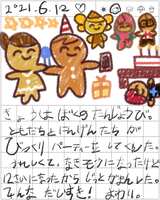 2021.6.12
きょうは ぼくの たんじょうび。
ともだちと にんげんたちが
びっくり パーティー を してくれた。
うれしくて、なきモクに なったけど
12さいになったから しっかりがまんした。
みんな だいすき! おわり。